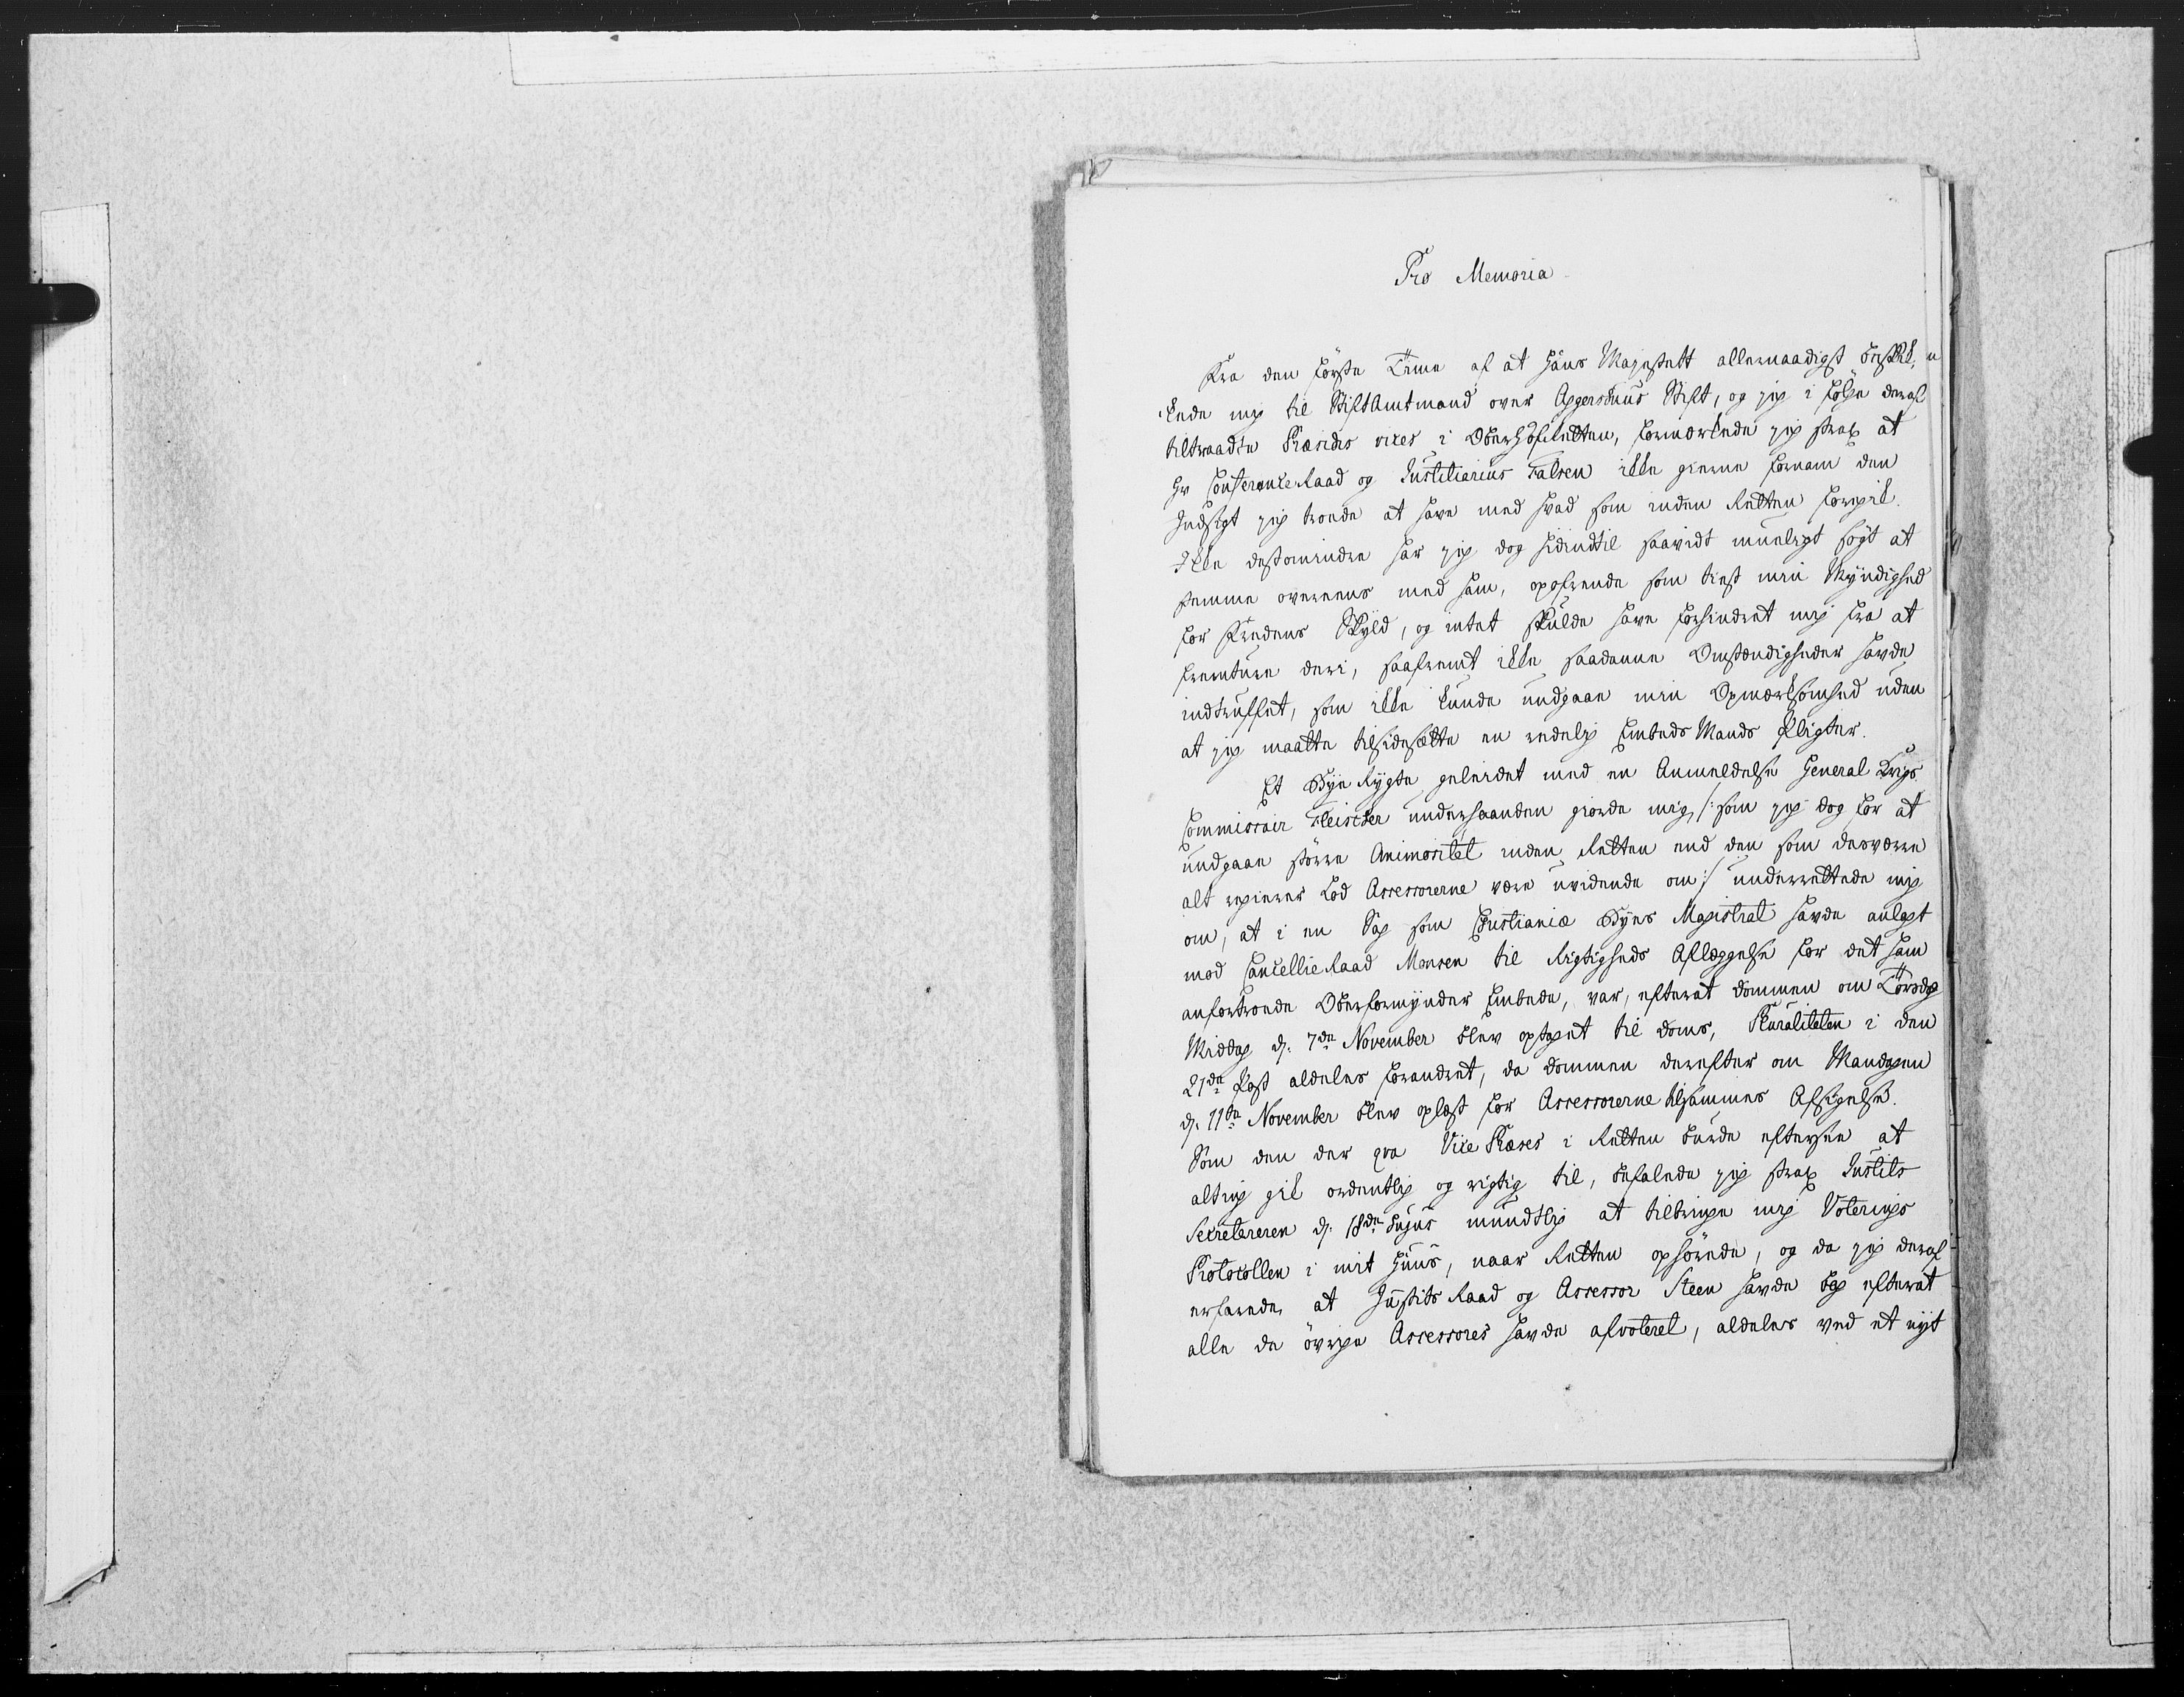 Pro Memoria
Fra den første Time af at Hans Majestætt allernaadigst beskik,
kede mig til Stiftamtmand over Aggershuus Stift, og jeg i følge deraf
tiltraadte Præsidis vices i OberHofRetten, formærkede jeg strax at
Hr ConferenceRaad og Justitiarius Falsen ikke gierne fornam den
Indsigt jeg troede at have med hvad som inden Retten foregik.
Ikke destomindre har jeg dog hidindtil saavidt mueligt søgt at
stemme overeens med ham, opofrende som tiest min Myndighed
for Fredens Skyld, og intet skulde have forhindret mig fra at
fremture deri, saafremt ikke saadanne Omstændigheder havde
indtruffet, som ikke kunde undgaae min Opmærksomhed uden
at jeg maatte tilsidesætte en redelig Embeds Mands Pligter.
Et Bye Rygte geleidet med en Anmeldelse General Krigs
Commissair Fleischer underhaanden giorde mig /: som jeg dog for at
undgaae større Animositet inden Retten end den som desværre
alt regierer lod Assessorerne være uvidende om :/ underrettede mig
om, at i en Sag som Christianiæ Byes Magistrat havde anlagt
mod CancellieRaad Monsen til Rigtigheds Aflæggelse for det ham
anfortroede Oberformynder Embede, var, efterat dommen om Torsdag
Middag d. 7de November blev optaget til doms, Pluraliteten i den
21de Post aldeles forandret, da dommen derefter om Mandagen
d. 11te November blev oplæst for Assessorerne til sammes Afsigelse.
Som den der qva Vice Præses i Retten burde eftersee at
alting gik ordentlig og rigtig til, befalede jeg strax Justits
Secreteren d. 18de hujus mundtlig at tilbringe mig Voterings
Protocollen i mit Huus, naar Retten ophørede, og da jeg deraf
erfarede, at Justits Raad og Assessor Steen havde efterat
alle de øvrige Assessores havde afvoteret, aldeles ved et nyt